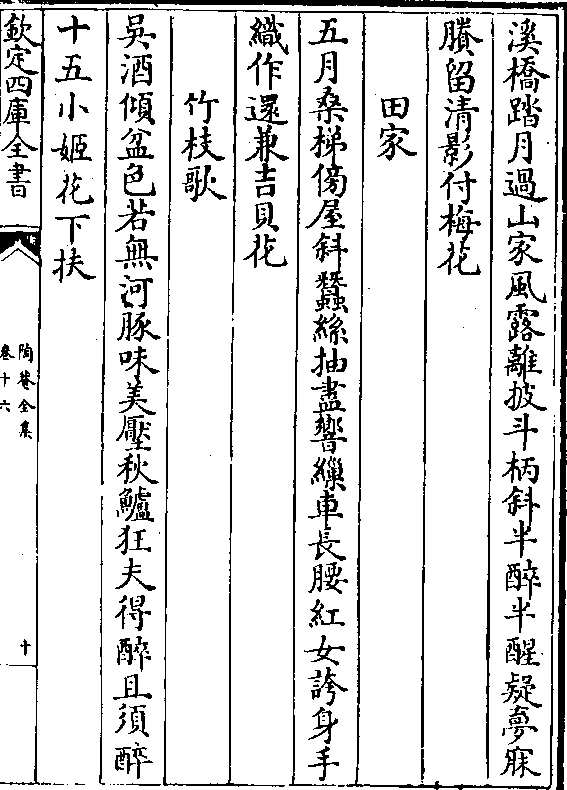 溪橋踏月過山家風露離披斗柄斜半醉半醒疑夢寐
賸留清影付梅花
田家
五月桑梯傍屋斜蠶絲抽盡響繅車長腰紅女誇身手
織作還兼吉貝花
竹枝歌
吳酒傾盆色若無河豚味美壓秋鱸狂夫得醉且須醉
十五小姬花下扶
欽定四庫全書
陶菴全集
卷十六
十